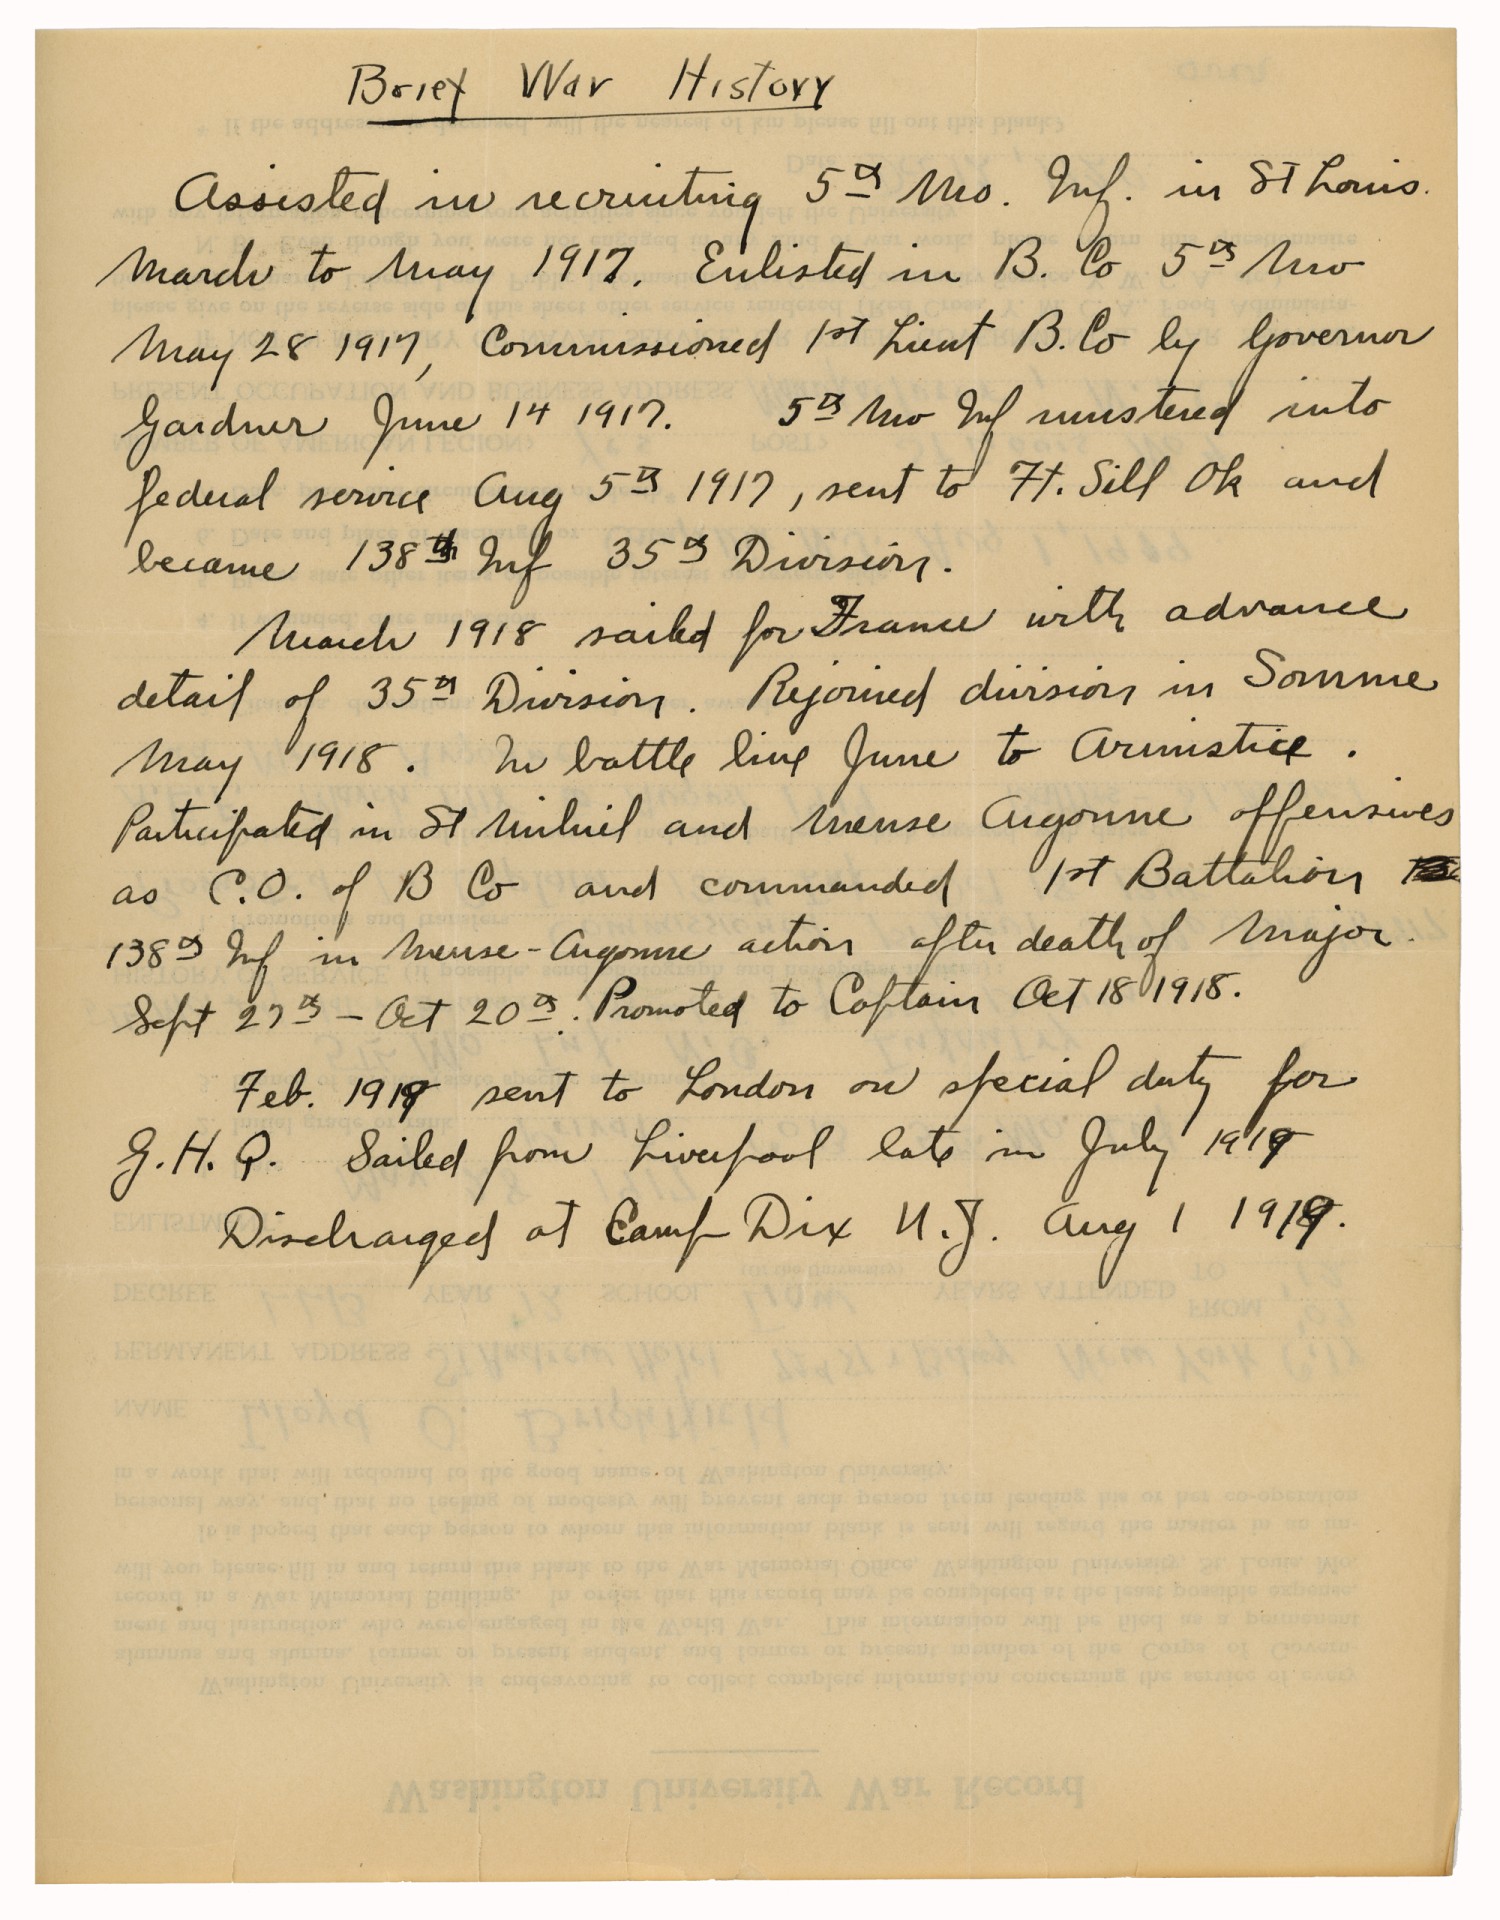 Brief War History
Assisted in recruiting 5th Mo. Inf. in St Louis.
March to May 1917. Enlisted in B. Co 5th Mo
May 28 1917, Commissioned 1st Lieut B. Co by Governor
Gardner June 14 1917. 5th Mo Inf mustered into
federal service Aug 5th 1917, sent to Ft. Sill Ok and
became 138th Inf 35th Division.
March 1918 sailed for France with advance
detail of 35th Division. Rejoined division in Somme
May 1918. In battle line June to Armistice.
Participated in St Mihiel and Meuse Argonne offensives
as C.O. of B Co and commanded 1st Battalion
138th Inf in Meuse-Argonne action after death of Major.
Sept 27th - Oct 20th. Promoted to Captain Oct 18 1918.
Feb. 1919 sent to London on special duty for
G.H.Q. Sailed from Liverpool late in July 1919
Discharged at Camp Dix N.J. Aug 1 1919.